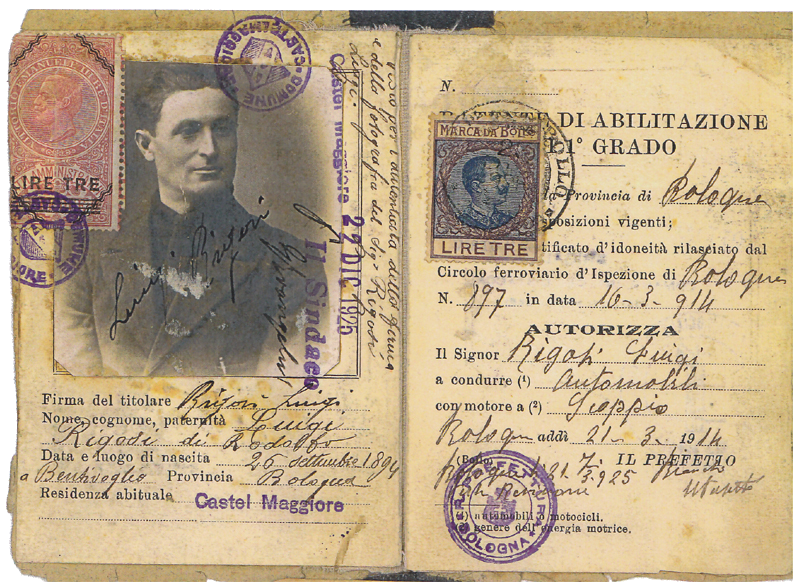 LIRE TRE
COMUNE
Castel Maggiore
22 DIC. 1925
Il Sindaco
Visto per l'autenticità della firma
e della fotografia del Sigr Rigosi
Luigi
Luigi Rigosi
Firma del titolare Rigosi Luigi
Nome, cognome, paternità Luigi
Rigosi di Rodolfo
Data e luogo di nascita 26 settembre 1894
a Bentivoglio Provincia Bologna
Residenza abituale Castel Maggiore
N.
DI ABILITAZIONE
1° GRADO
MARCA DA BOLLO
LIRE TRE
la Provincia di Bologna
posizioni vigenti;
tificato d'idoneità rilasciato dal
Circolo ferroviario d'Ispezione di Bologna
N. 897 in data 16-3-914
AUTORIZZA
Il Signor Rigosi Luigi
a condurre (1) Automobili
con motore a (2) Scoppio
Bologna addì 21-3-1914
(Bollo) IL PREFETTO
925
R. PREFETTURA
BOLOGNA
(1) automobili o motocicli.
(2) genere dell'energia motrice.